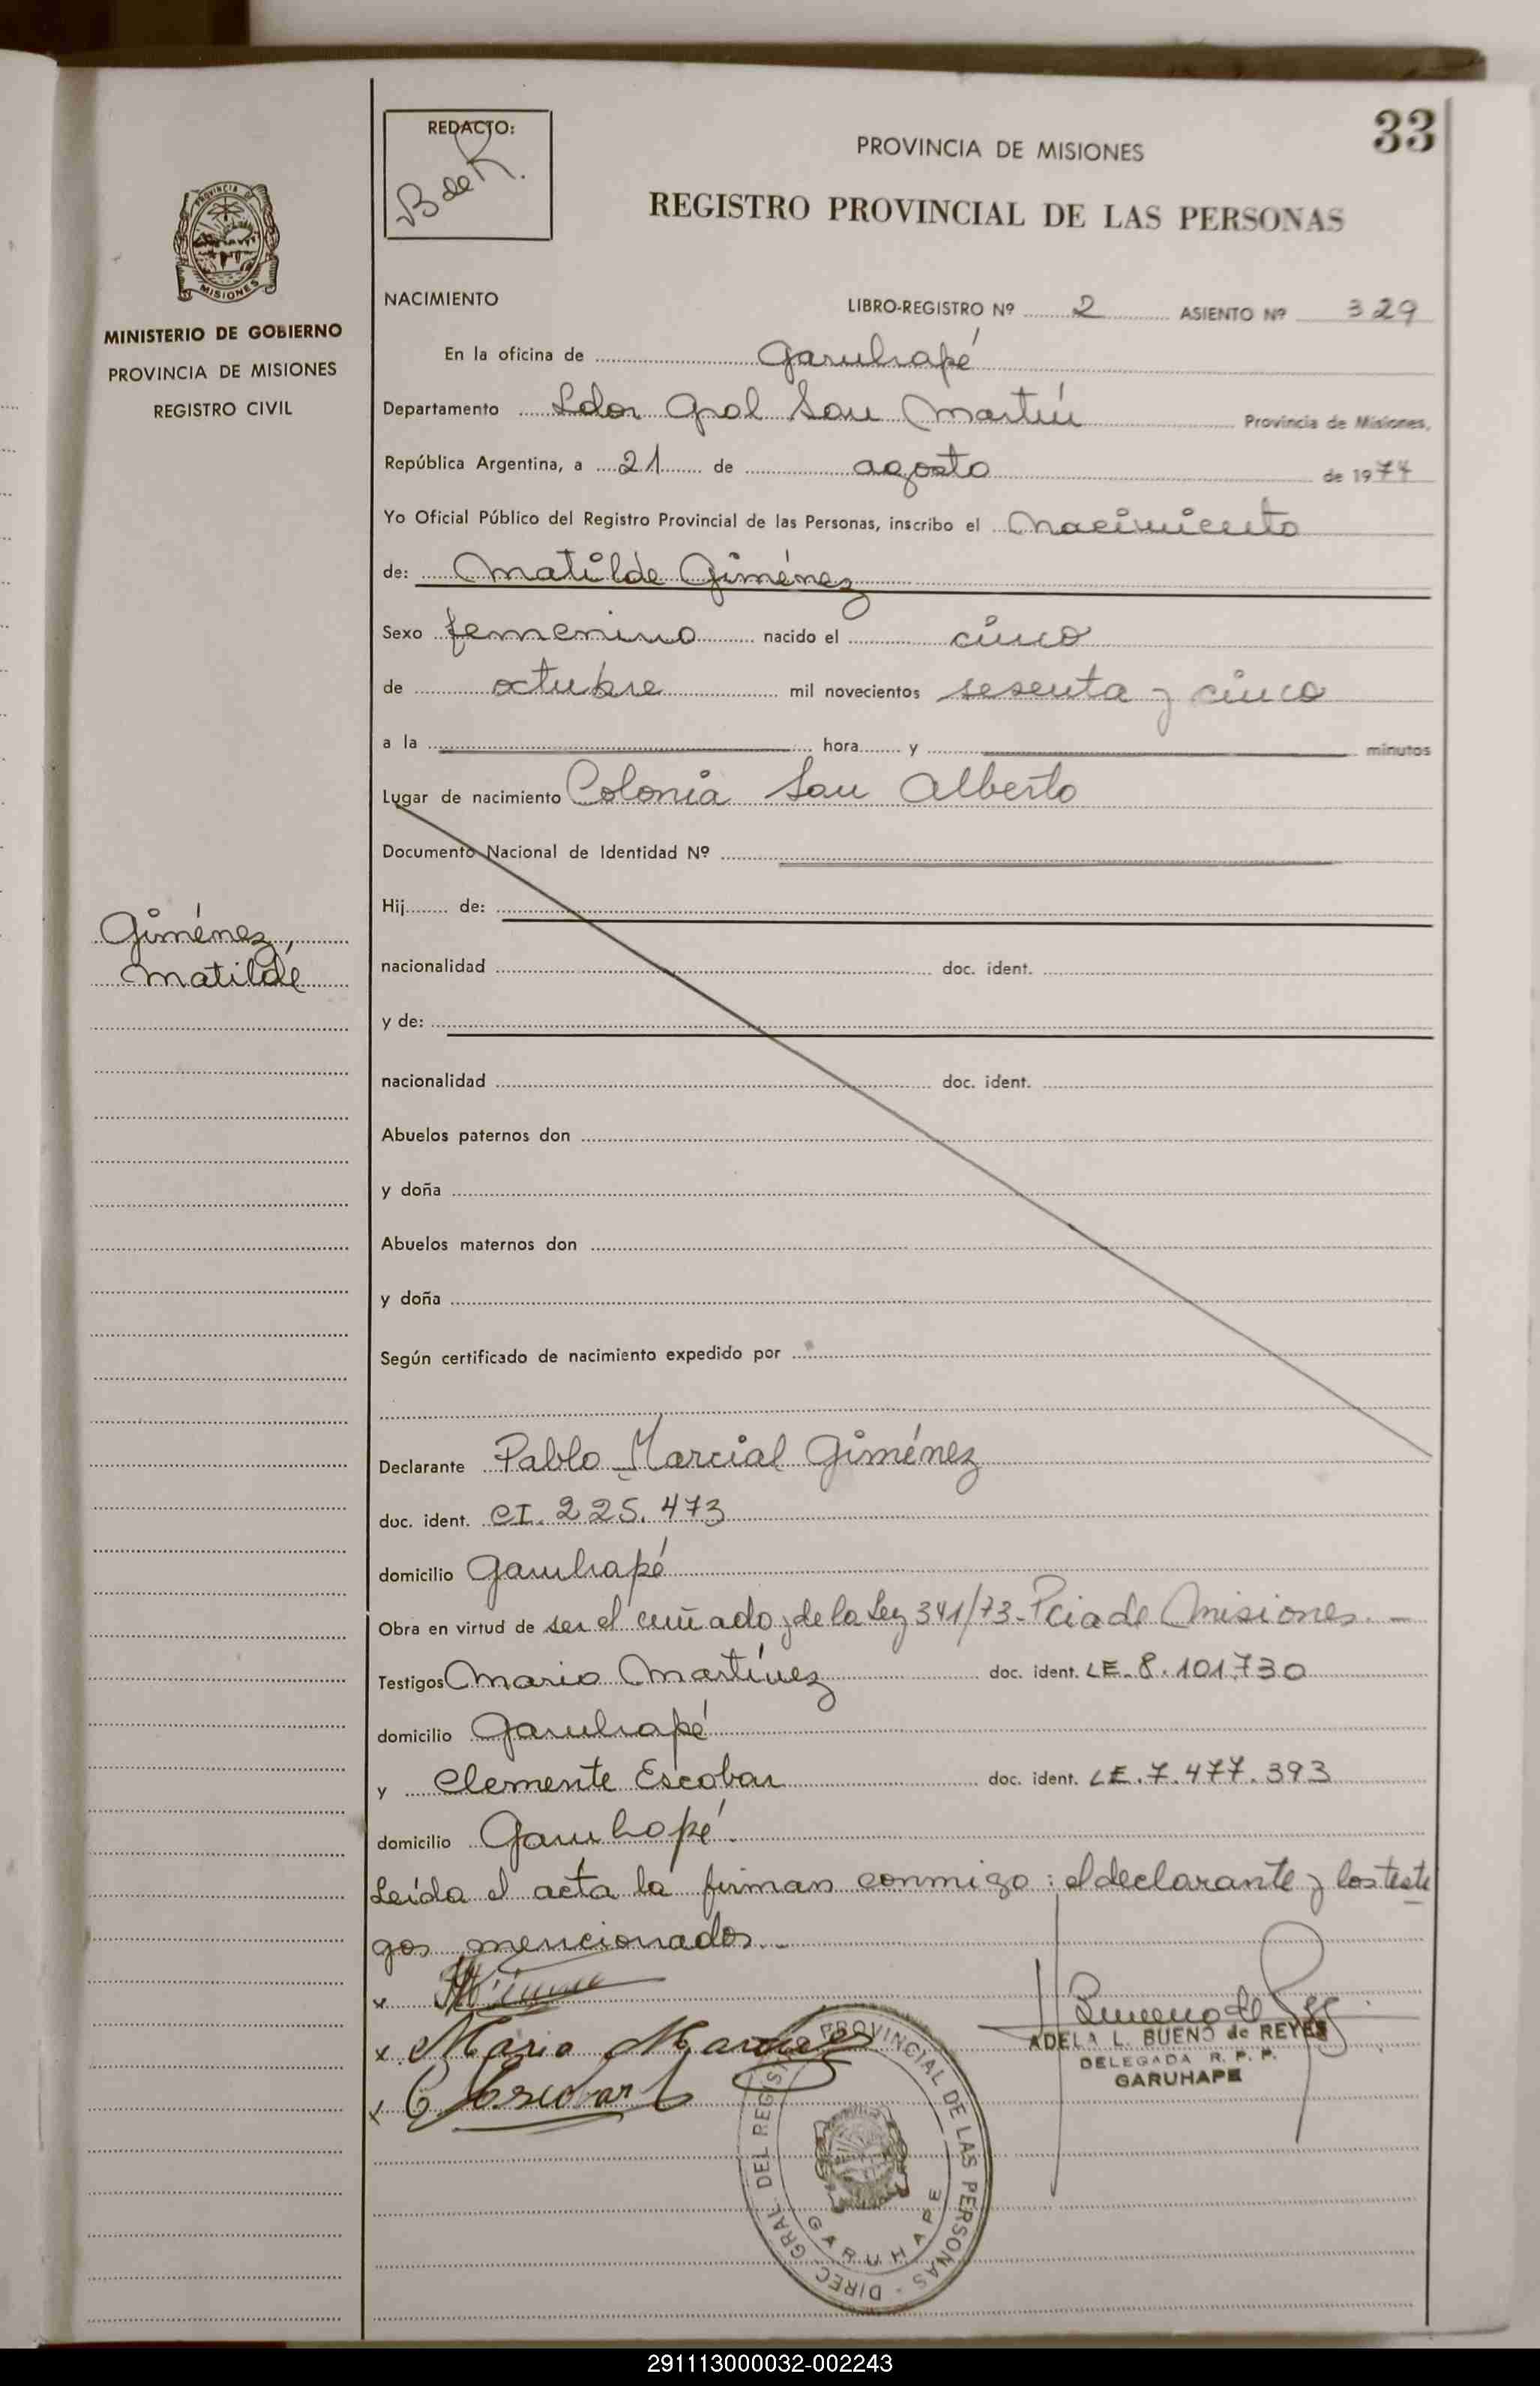 33
REDACTO:
B de R.
PROVINCIA DE MISIONES
REGISTRO PROVINCIAL DE LAS PERSONAS
PROVINCIA DE
MISIONES
MINISTERIO DE GOBIERNO
PROVINCIA DE MISIONES
REGISTRO CIVIL
Giménez,
Matilde
NACIMIENTO LIBRO-REGISTRO Nº 2 ASIENTO Nº 329
En la oficina de Garuhapé
Departamento Ldor Gral San Martín Provincia de Misiones,
República Argentina, a 21 de agosto de 1974
Yo Oficial Público del Registro Provincial de las Personas, inscribo el nacimiento
de: Matilde Giménez
Sexo femenino nacido el cinco
de octubre mil novecientos sesenta y cinco
a la hora y minutos
Lugar de nacimiento Colonia San Alberto
Documento Nacional de Identidad Nº
Hij de:
nacionalidad doc. ident.
y de:
nacionalidad doc. ident.
Abuelos paternos don
y doña
Abuelos maternos don
y doña
Según certificado de nacimiento expedido por
Declarante Pablo Marcial Giménez
doc. ident. CI. 225.473
domicilio Garuhapé
Obra en virtud de ser el cuñado y de la Ley 341/73-Pcia de Misiones. -
Testigos Mario Martínez doc. ident. LE. 8.101.730
domicilio Garuhapé
y Clemente Escobar doc. ident. LE. 7.477.393
domicilio Garuhapé.
Leída el acta la firman conmigo: el declarante y los testi
gos mencionados.-
x
x Mario Martinez
x C Escobar
ADELA L. BUENO de REYES
DELEGADA R. P. P.
GARUHAPE
DIREC. GRAL. DEL REGIST. PROVINCIAL DE LAS PERSONAS -
GARUHAPE
291113000032-002243